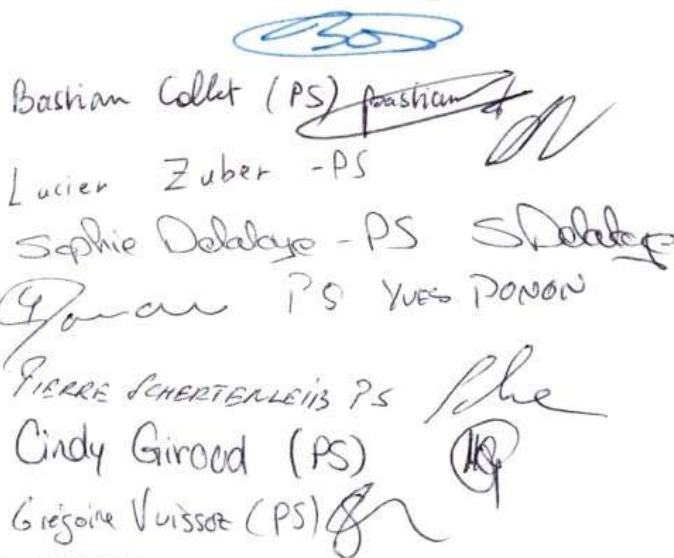 Bastian Collet (PS) Bastian
Lucien Zuber - PS
Sophie Delaloye - PS SDelaloye
PS YVES DONON
PIERRE SCHERTENLEIB PS
Cindy Giroud (PS)
Grégoire Vuissoz (PS)